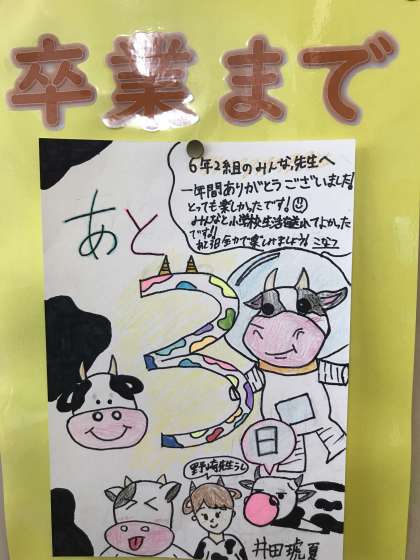 卒業まで
6年2組のみんな、先生へ
一年間ありがとうございました!
とっても楽しかたです!
みんなと小学校生活を送れてよかった
です!!
あと3日全力で楽しみましょう! こなつ
あと
3
日
野崎先生らし
井田琥夏